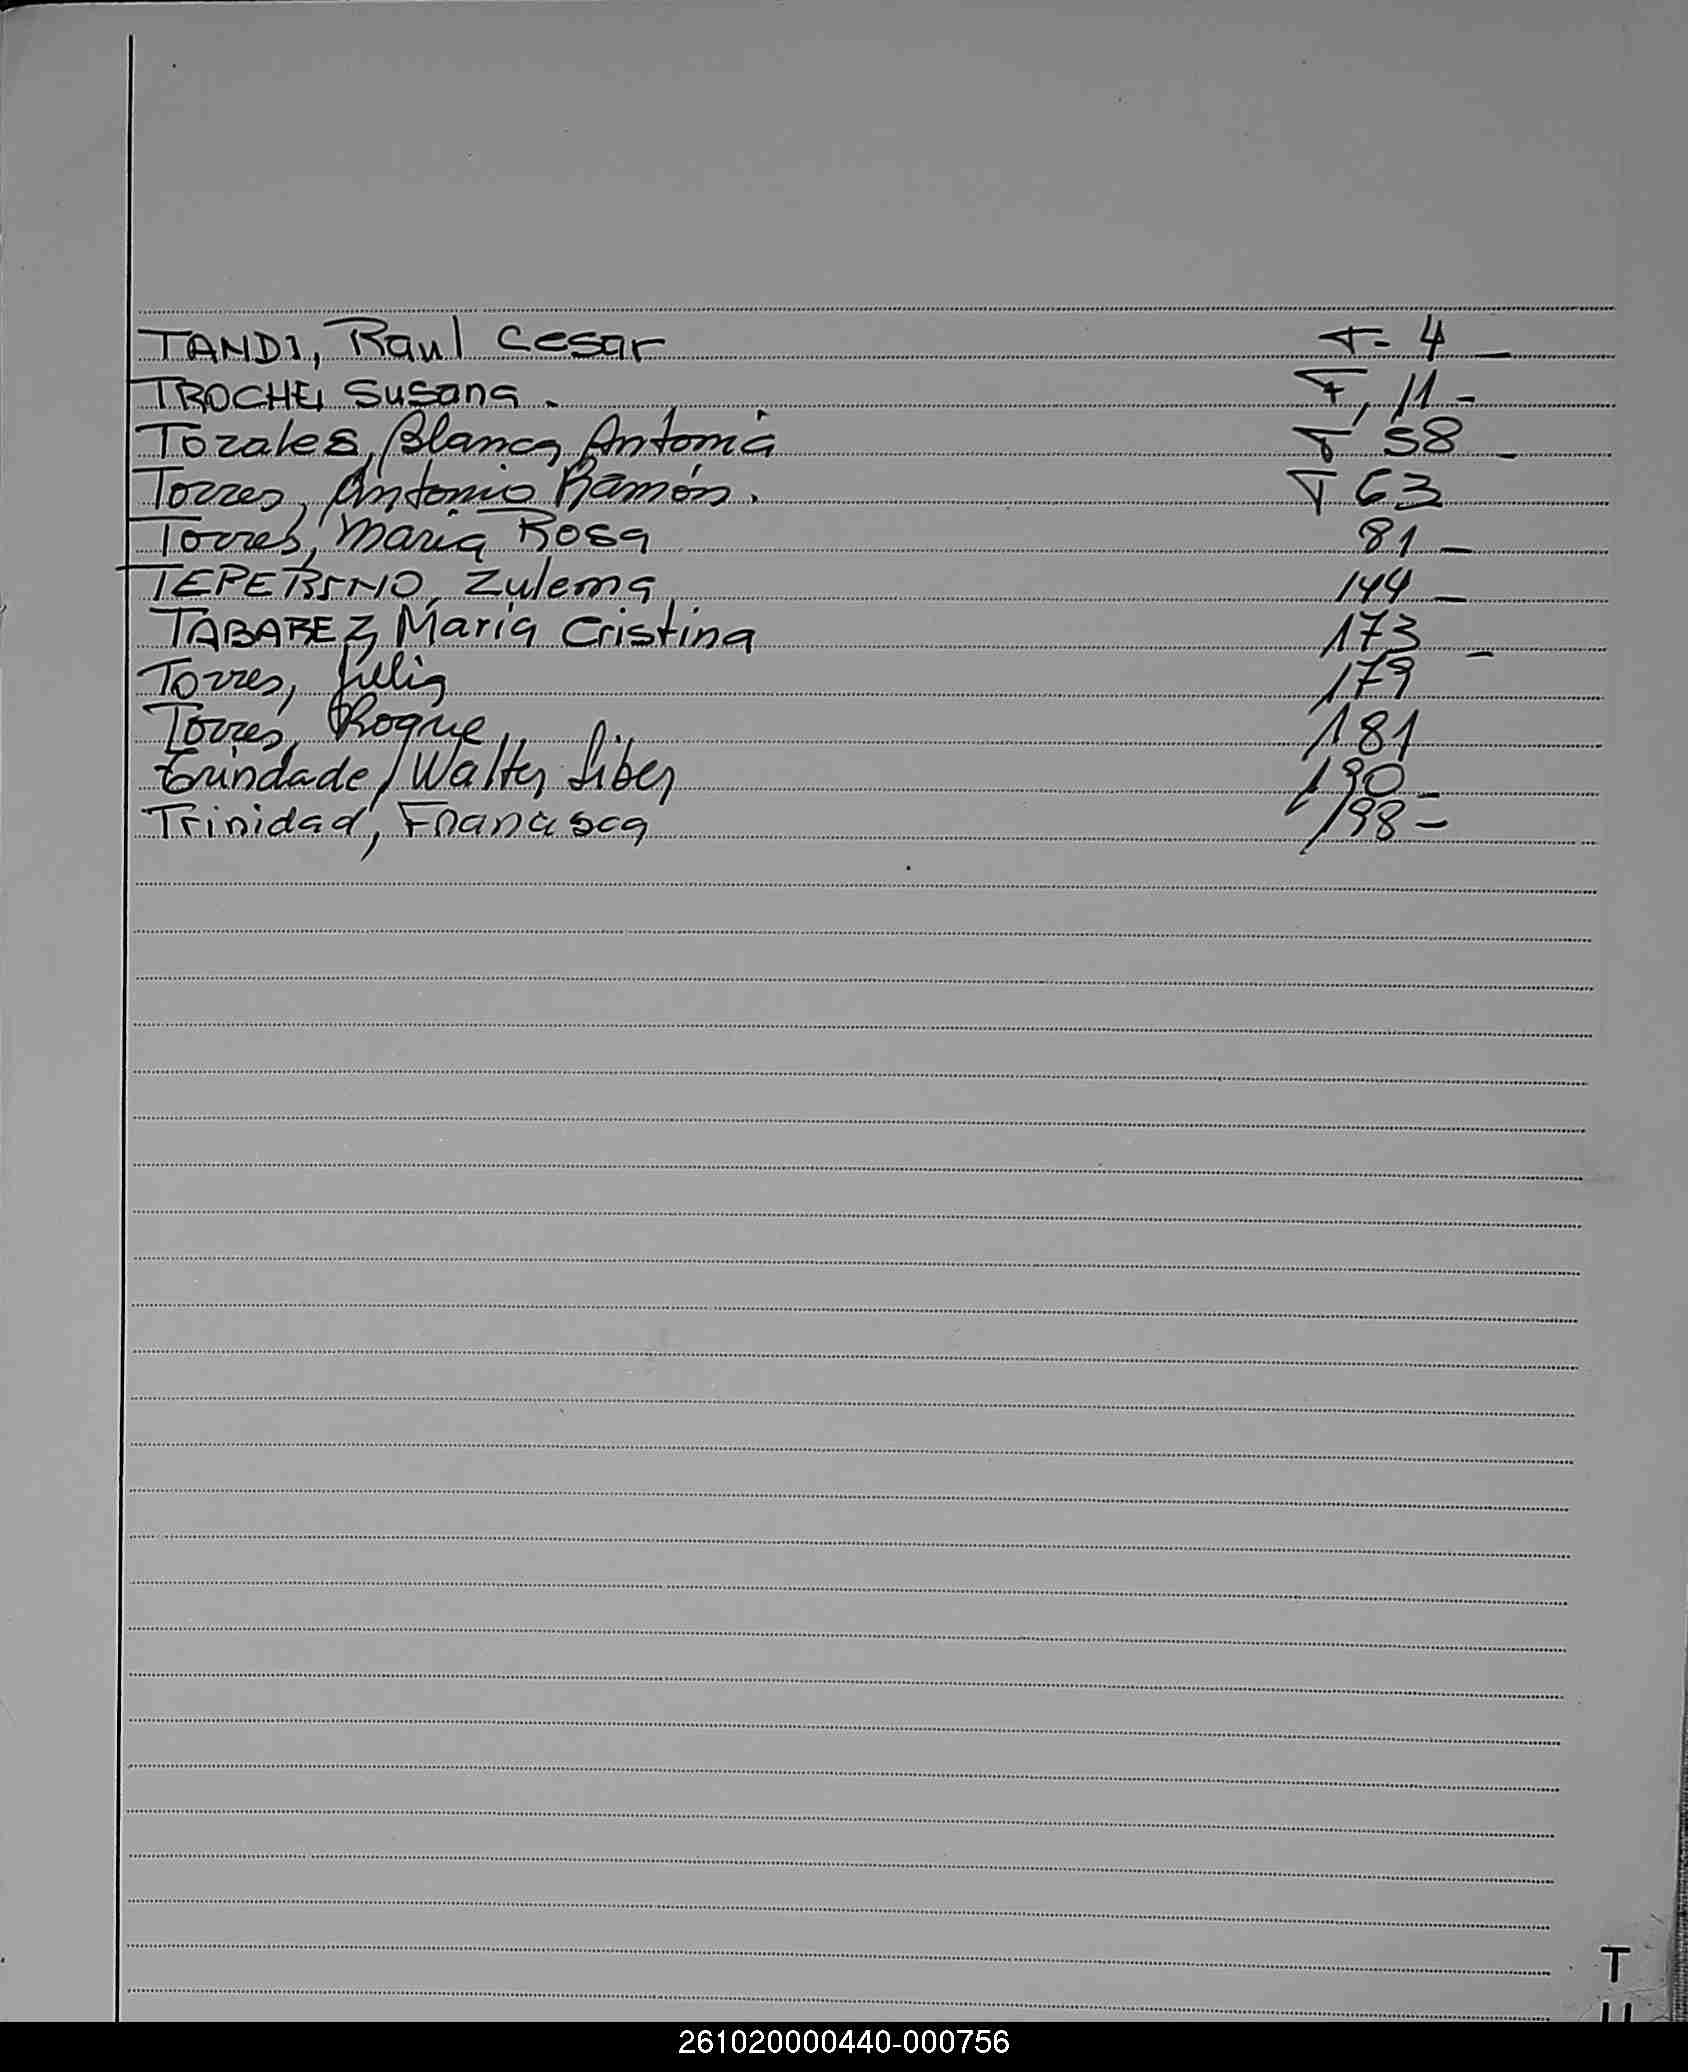 TANDI, Raul Cesar T- 4 _
TROCHE, Susana. T, 11 -
Torales, Blanca Antonia T 58 _
Torres, Antonio Ramón. T 63
Torres, Maria Rosa 81 _
TEPERINO, Zulema 144 _
TABAREZ, María Cristina 173 _
Torres, Julia 179
Torres, Roque 181
Trindade, Walter Liber 190 _
Trinidad, Francisca 198 -
T
U
261020000440-000756